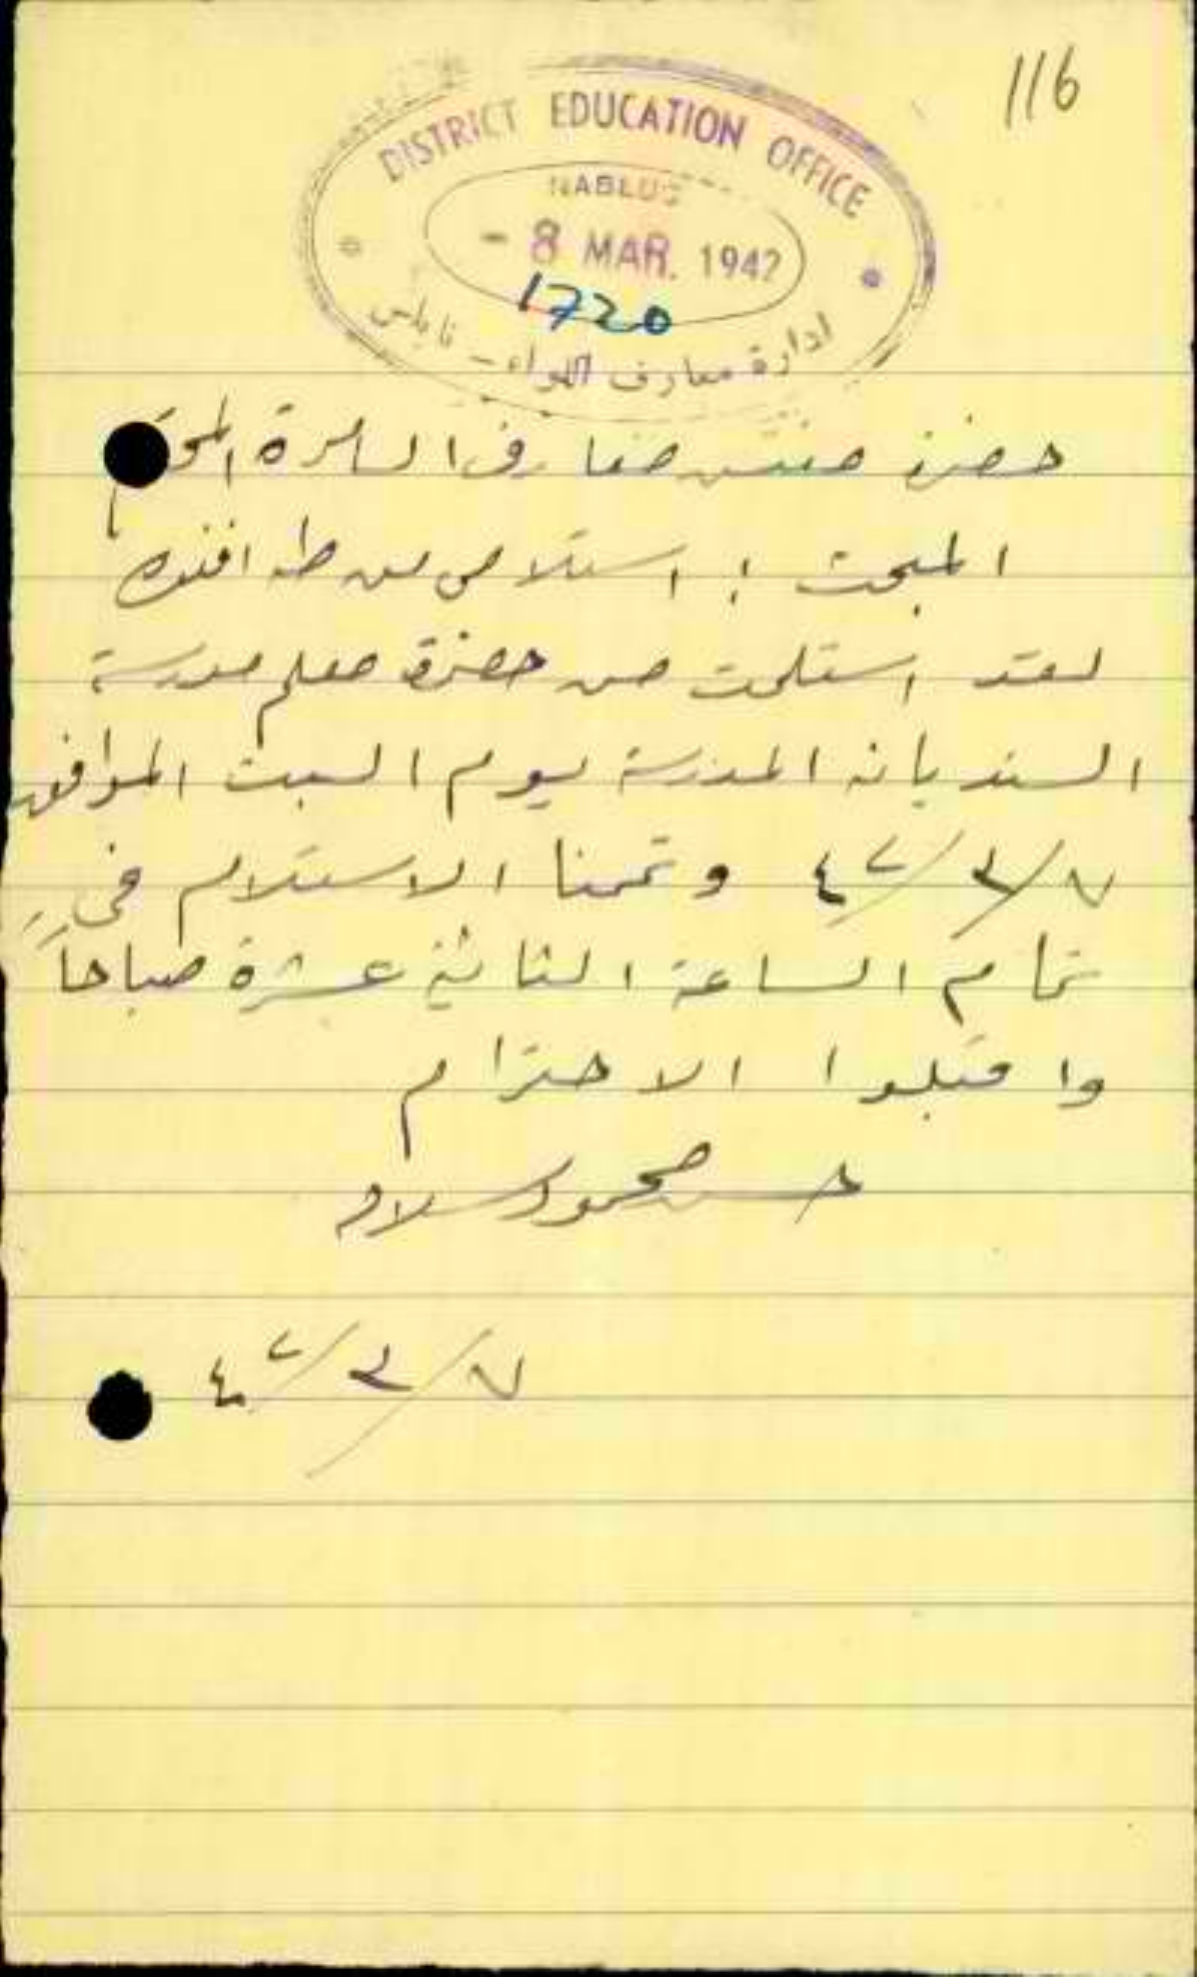 116
DISTRICT EDUCATION OFFICE
NABLUS
- 8 MAR. 1942
1720
ادارة معارف اللواء - نابلس
حضرة مفتش معارف السامرة المحترم
المبحث : استلامي من طه افندي
لقد استلمت من حضرة معلم مدرسة
السنديانه المدرسة يوم السبت الموافق
٧/٣/٤٢ وتممنا الاستلام في
تمام الساعة الثانية عشرة صباحاً
واقبلوا الاحترام
حسن محمود سلامه
٧/٣/٤٢